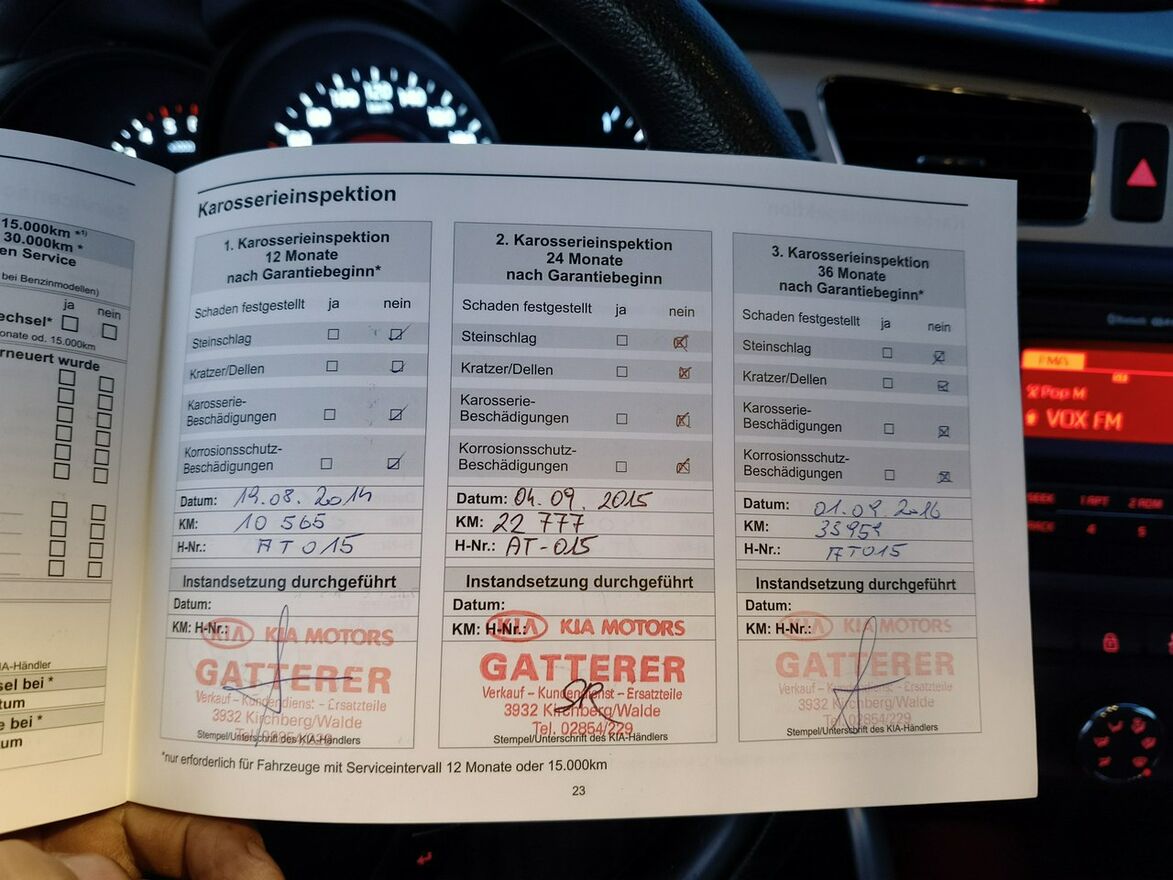 15.000km *1)
30.000km *
en Service
bei Benzinmodellen)
ja nein
echsel*
onate od. 15.000km
erneuert wurde
IA-Händler
sel bei *
tum
e bei *
um
Karosserieinspektion
1. Karosserieinspektion
12 Monate
nach Garantiebeginn*
Schaden festgestellt ja nein
Steinschlag
Kratzer/Dellen
Karosserie-
Beschädigungen
Korrosionsschutz-
Beschädigungen
Datum: 19.08.2014
KM: 10 565
H-Nr.: AT015
Instandsetzung durchgeführt
Datum:
KM: H-Nr.:
KIA KIA MOTORS
GATTERER
Verkauf - Kundendienst - Ersatzteile
3932 Kirchberg/Walde
Stempel/Unterschrift des KIA-Händlers
2. Karosserieinspektion
24 Monate
nach Garantiebeginn
Schaden festgestellt ja nein
Steinschlag
Kratzer/Dellen
Karosserie-
Beschädigungen
Korrosionsschutz-
Beschädigungen
Datum: 04.09.2015
KM: 22 777
H-Nr.: AT-015
Instandsetzung durchgeführt
Datum:
KM: H-Nr.:
KIA KIA MOTORS
GATTERER
Verkauf - Kundendienst - Ersatzteile
3932 Kirchberg/Walde
Tel. 02854/229
Stempel/Unterschrift des KIA-Händlers
3. Karosserieinspektion
36 Monate
nach Garantiebeginn*
Schaden festgestellt ja nein
Steinschlag
Kratzer/Dellen
Karosserie-
Beschädigungen
Korrosionsschutz-
Beschädigungen
Datum:
KM:
H-Nr.: AT015
Instandsetzung durchgeführt
Datum:
KM: H-Nr.:
KIA KIA MOTORS
GATTERER
Verkauf - Kundendienst - Ersatzteile
3932 Kirchberg/Walde
Tel. 02854/229
Stempel/Unterschrift des KIA-Händlers
*nur erforderlich für Fahrzeuge mit Serviceintervall 12 Monate oder 15.000km
23
100 120 140
km/h
Pop M
VOX FM
4 5